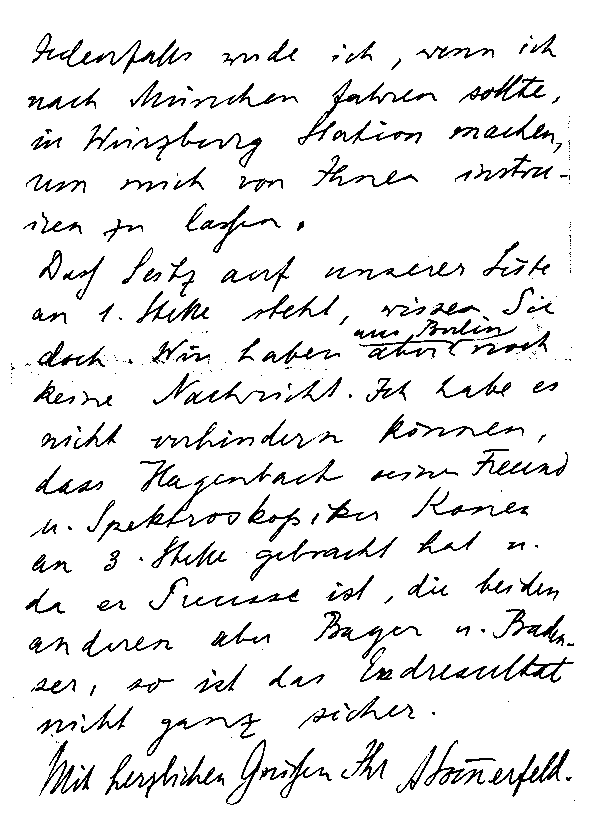 Jedenfalls würde ich, wenn ich
nach München fahren sollte,
in Würzburg Station machen,
um mich von Ihnen instru-
iren zu lassen.
Dass Seitz auf unserer Liste
an 1. Stelle steht, wissen Sie
aus Berlin
doch. Wir haben aber noch
keine Nachricht. Ich habe es
nicht verhindern können,
dass Hagenbach seinen Freund
u. Spektroskopiker Konen
an 3. Stelle gebracht hat u.
da er Preusse ist, die beiden
anderen aber Bayer u. Baden-
ser, so ist das Endresultat
nicht ganz sicher.
Mit herzlichen Grüßen Ihr ASommerfeld.